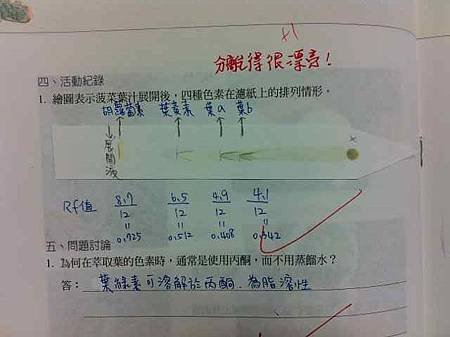 +1
分離得很漂亮!
四、活動紀錄
1. 繪圖表示菠菜葉汁展開後,四種色素在濾紙上的排列情形。
胡蘿蔔素 葉黃素 葉a 葉b
展開液
Rf值 8.7/12 6.5/12 4.9/12 4.1/12
= = = =
0.725 0.512 0.408 0.342
五、問題討論
1. 為何在萃取葉的色素時,通常是使用丙酮,而不用蒸餾水?
答: 葉綠素可溶解於丙酮.為脂溶性